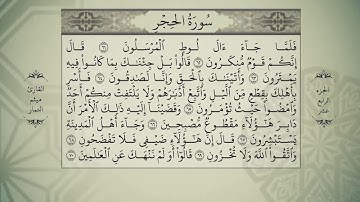 سُورَةُ الحِجْرِ
الجزء
الرابع
عشر
فَلَمَّا جَآءَ ءَالَ لُوطٍ ٱلْمُرْسَلُونَ ٦١ قَالَ
إِنَّكُمْ قَوْمٌ مُّنكَرُونَ ٦٢ قَالُوا۟ بَلْ جِئْنَـٰكَ بِمَا كَانُوا۟ فِيهِ
يَمْتَرُونَ ٦٣ وَأَتَيْنَـٰكَ بِٱلْحَقِّ وَإِنَّا لَصَـٰدِقُونَ ٦٤ فَأَسْرِ
بِأَهْلِكَ بِقِطْعٍ مِّنَ ٱلَّيْلِ وَٱتَّبِعْ أَدْبَـٰرَهُمْ وَلَا يَلْتَفِتْ مِنكُمْ أَحَدٌ
وَٱمْضُوا۟ حَيْثُ تُؤْمَرُونَ ٦٥ وَقَضَيْنَآ إِلَيْهِ ذَٰلِكَ ٱلْأَمْرَ أَنَّ
دَابِرَ هَـٰٓؤُلَآءِ مَقْطُوعٌ مُّصْبِحِينَ ٦٦ وَجَآءَ أَهْلُ ٱلْمَدِينَةِ
يَسْتَبْشِرُونَ ٦٧ قَالَ إِنَّ هَـٰٓؤُلَآءِ ضَيْفِى فَلَا تَفْضَحُونِ ٦٨
وَٱتَّقُوا۟ ٱللَّهَ وَلَا تُخْزُونِ ٦٩ قَالُوٓا۟ أَوَلَمْ نَنْهَكَ عَنِ ٱلْعَـٰلَمِينَ ٧٠
القارئ
ميثم
التمار